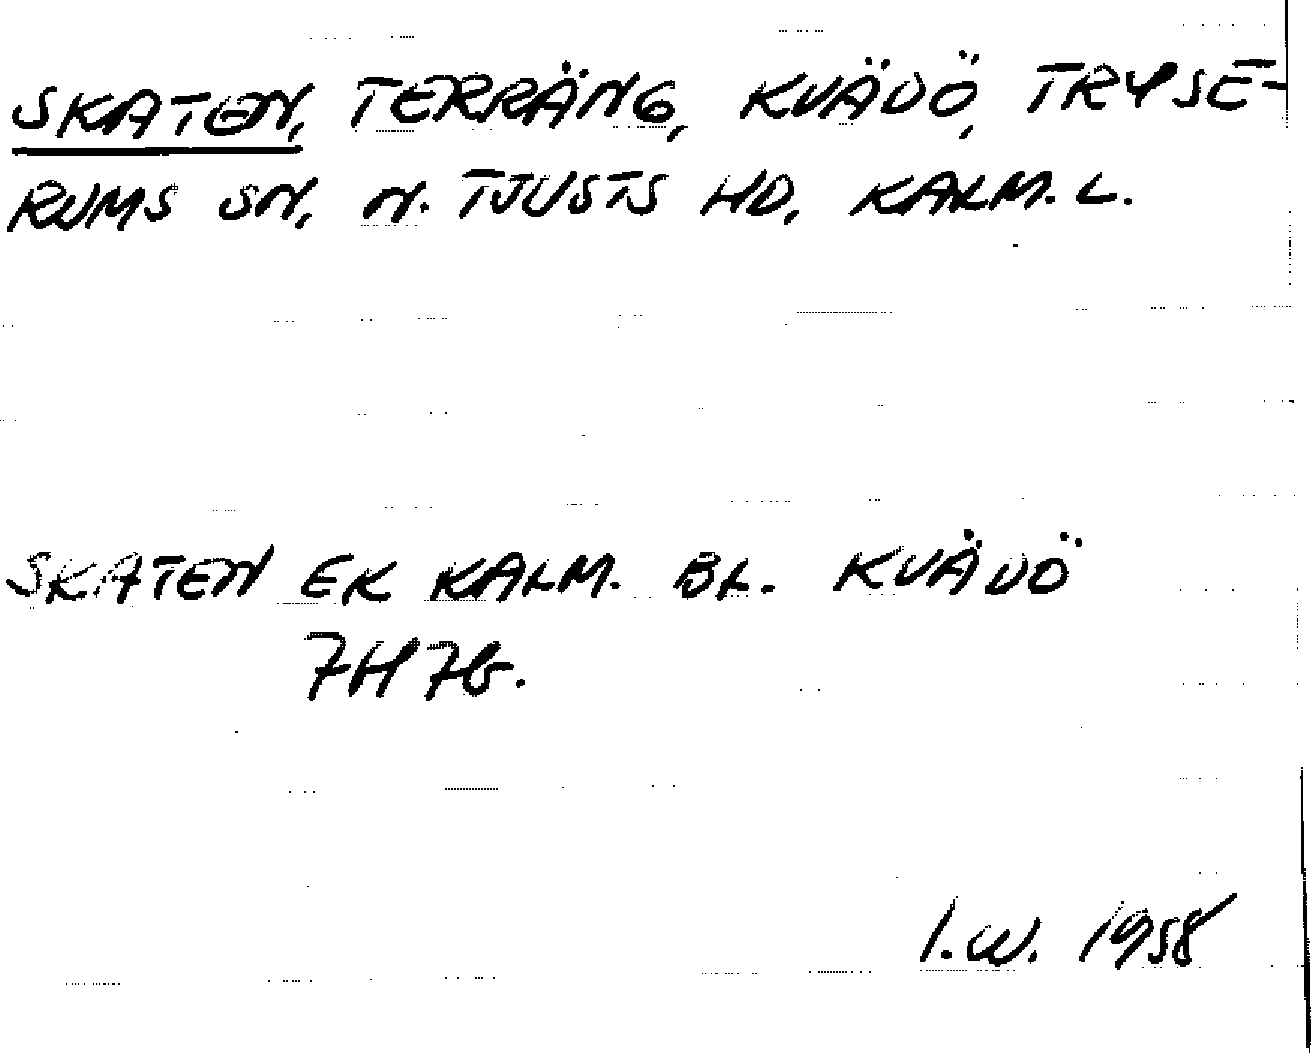 SKATEN, TERRÄNG, KVÄDÖ, TRYSE-
RUMS SN, N. TJUSTS HD, KALM. L.
SKATEN EK KALM. BL. KVÄDÖ
7H7b.
I.W. 1958